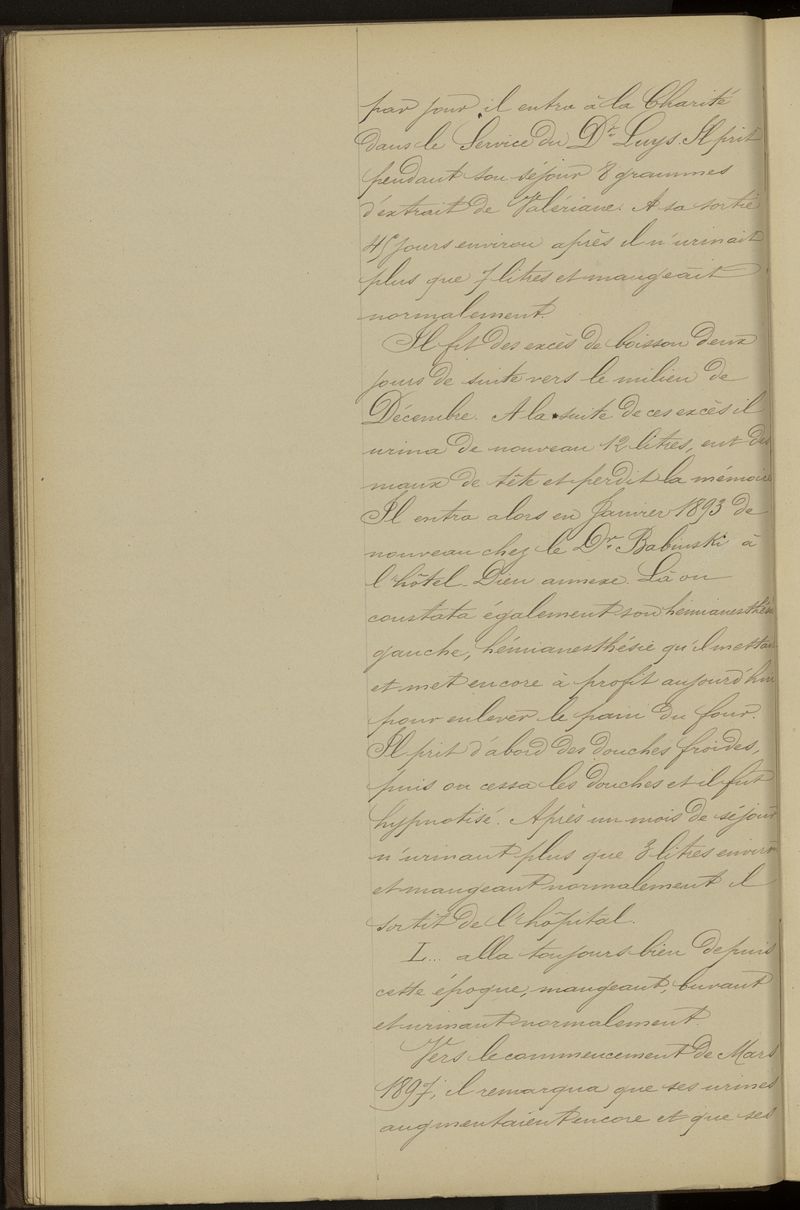 par jour il entra à la Charité
dans le Service du Dr. Luys. Il prit
pendant son séjour 8 grammes
d'extrait de Valériane. A sa sortie
45 jours environ après il n'urinait
plus que 7 litres et mangeait
normalement.
Il fit des excès de boisson deux
jours de suite vers le milieu de
Décembre. A la suite de ces excès il
urina de nouveau 12 litres, eut des
maux de tête et perdit la mémoire
Il entra alors en Janvier 1893 de
nouveau chez le Dr. Babinski à
l'hôtel-Dieu annexe. Là on
constata également son hémianesthésie
gauche, hémianesthésie qu'il mettait
et met encore à profit aujourd'hui
pour enlever le pain du four.
Il prit d'abord des douches froides,
puis on cessa les douches et il fut
hypnotisé. Après un mois de séjour
n'urinant plus que 3 litres environ
et mangeant normalement il
sortit de l'hôpital.
L... alla toujours bien depuis
cette époque, mangeant, buvant
et urinant normalement.
Vers le commencement de Mars
1897, il remarqua que ses urines
augmentaient encore et que ses